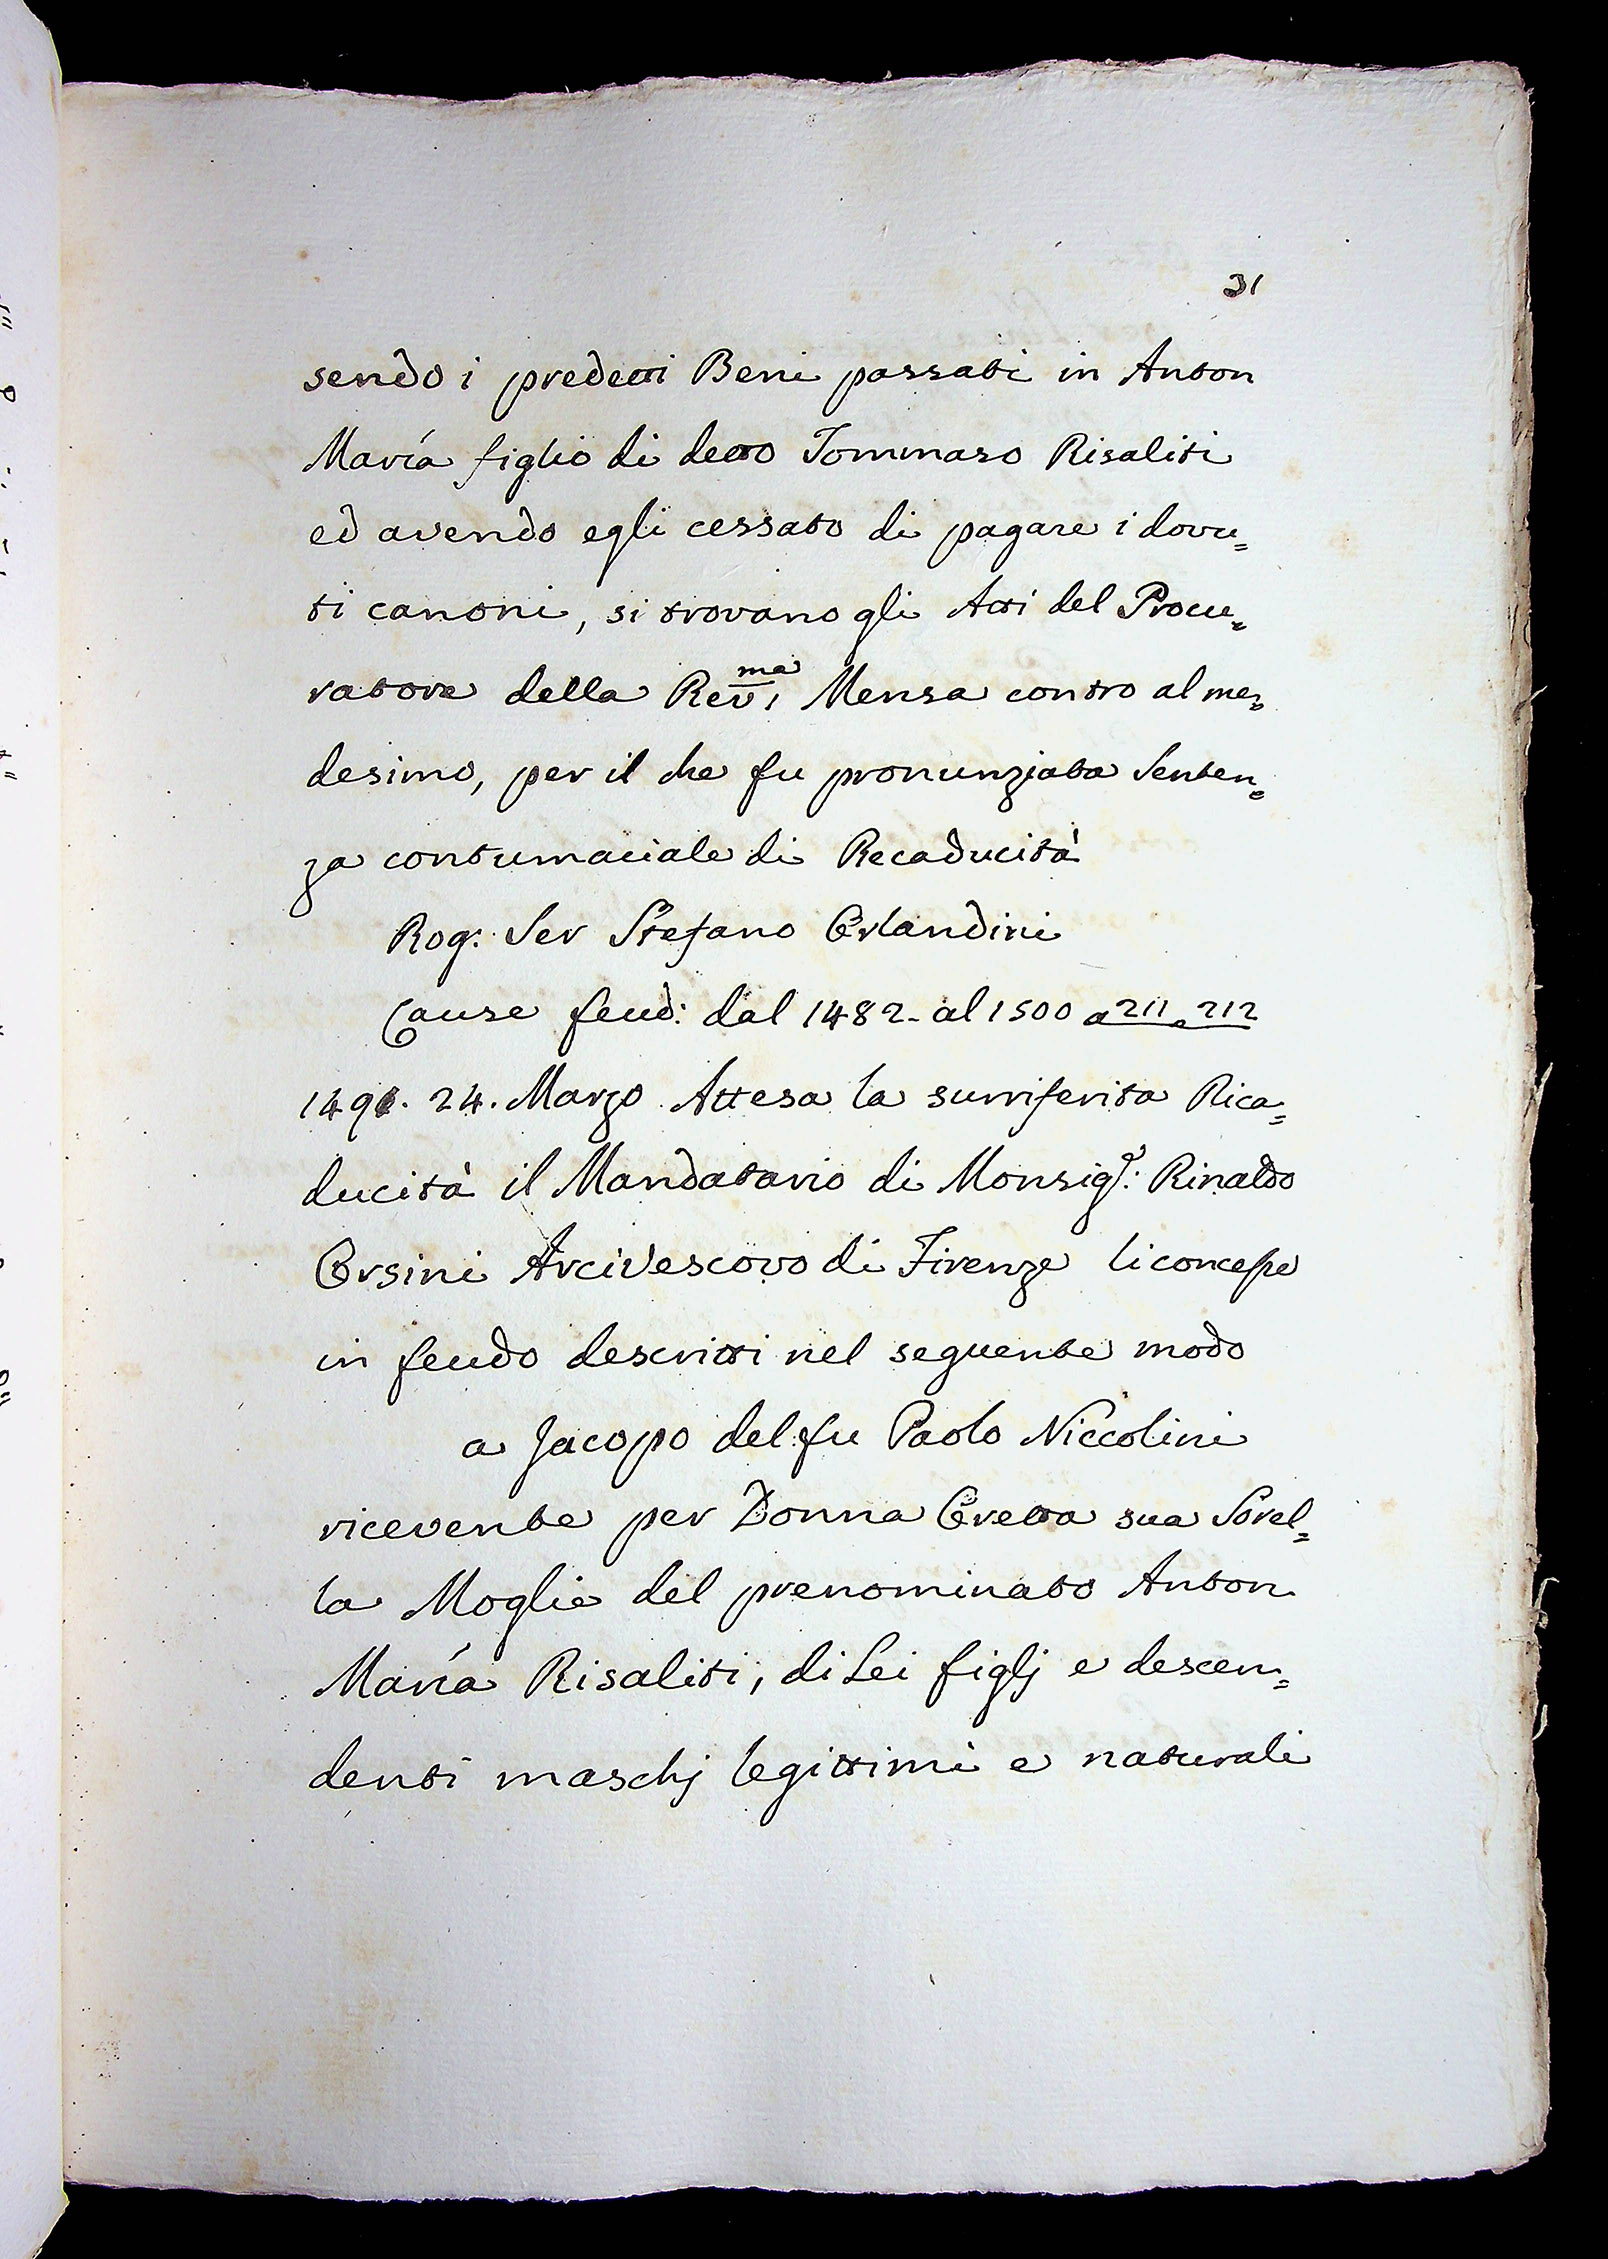 31
sendo i predetti Beni passati in Anton
María figlio di detto Tommaso Risaliti
ed avendo egli cessato di pagare i dovu=
ti canoni, si trovano gli Atti del Procu=
ratore della Rev.ma Mensa contro al me=
desimo, per il che fu pronunziata Senten=
za contumaciale di Recaducità
Rog: Ser Stefano Orlandini
Cause feud: dal 1482. al 1500 a 211 e 212
1491. 24. Marzo Attesa la surriferita Rica=
ducità il Mandatario di Monsigr: Rinaldo
Orsini Arcivescovo di Firenze li concesse
in feudo descritti nel seguente modo
a Jacopo del fu Paolo Niccolini
ricevente per Donna Oretta sua Sorel=
la Moglie del prenominato Anton
María Risaliti, di Lei figlj e descen=
denti maschj legittimi e naturali